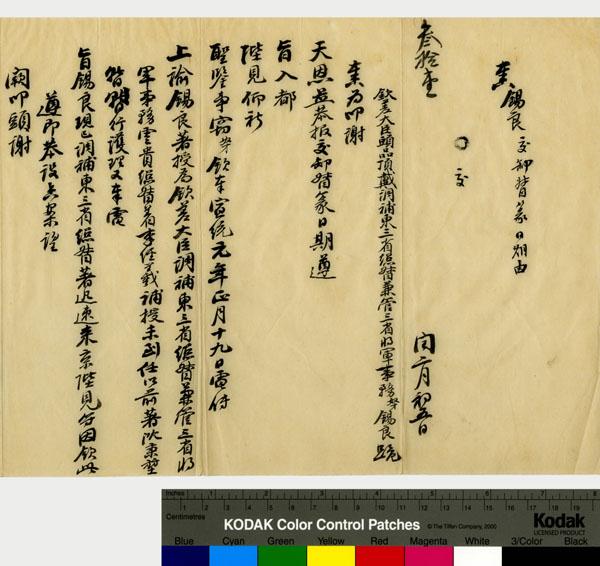 奏錫良交卸督篆日期由
叁拾壹
交
閏二月初五日
欽差大臣頭品頂戴調補東三省總督兼管三省將軍事務奴才錫良跪
奏為叩謝
天恩並恭報交卸督篆日期遵
旨入都
陛見仰祈
聖鑒事竊奴才欽奉宣統元年正月十九日電傳
上諭錫良著授為欽差大臣調補東三省總督兼管三省將
軍事務雲貴總督著李經羲補授未到任以前著沈秉堃
暫行護理又奉電
旨錫良現已調補東三省總督著迅速來京陛見各因欽此
遵即恭設香案望
闕叩頭謝
Inches
Centimetres
KODAK Color Control Patches
© The Tiffen Company, 2000
Kodak
LICENSED PRODUCT
Blue Cyan Green Yellow Red Magenta White 3/Color Black